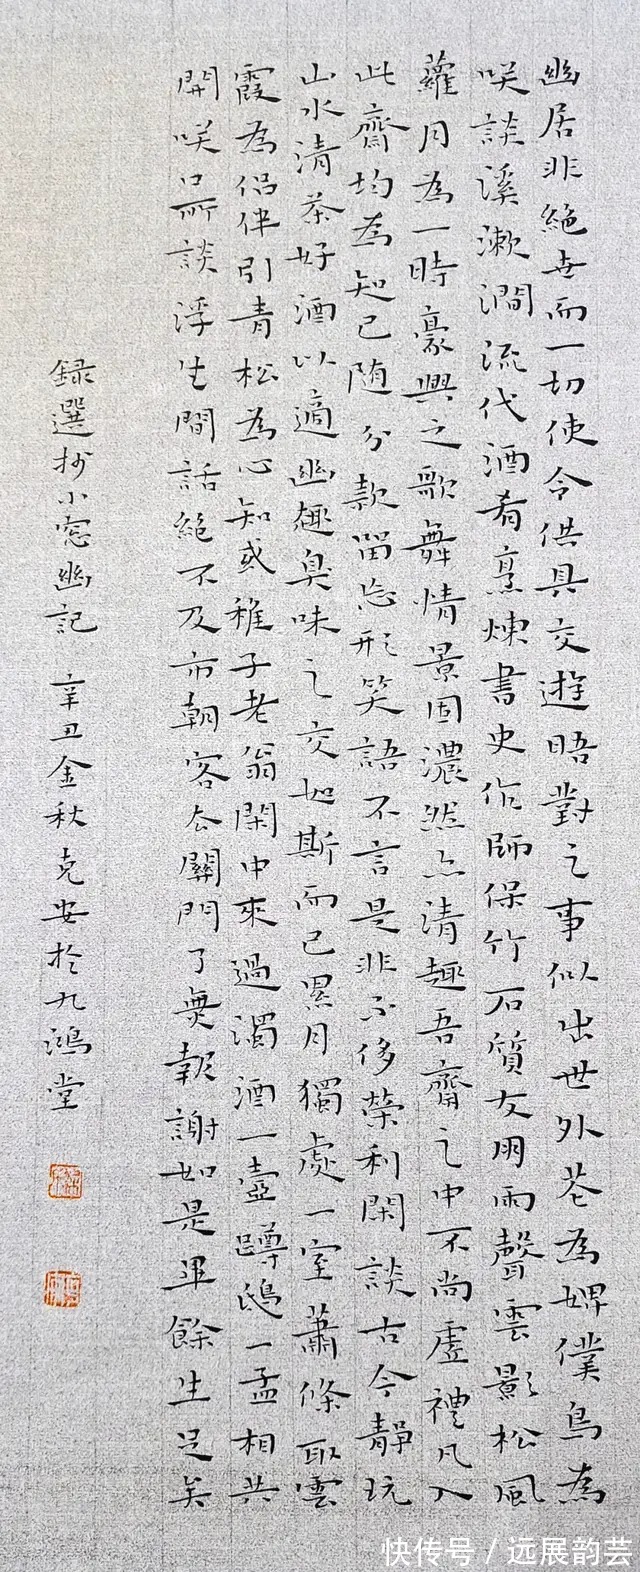 幽居非絕世而一切使令供具交遊晤對之事似出世外花為婢僕鳥為
咲談溪漱澗流代酒肴烹煉書史作師保竹石質友朋雨聲雲影松風
蘿月為一時豪興之歌舞情景固濃然亦清趣吾齋之中不尚虛禮凡入
此齋均為知己随分款留忘形笑語不言是非不侈榮利閑談古今靜玩
山水清茶好酒以適幽趣臭味之交如斯而已累月獨處一室蕭條取雲
霞為侶伴引青松為心知或稚子老翁閑中來過濁酒一壺蹲鴟一盂相共
開咲口所談浮生閒話絕不及市朝客去關門了無報謝如是畢餘生足矣
録選抄小窓幽記 辛丑金秋克安於九鴻堂
快传号 / 远展韵芸